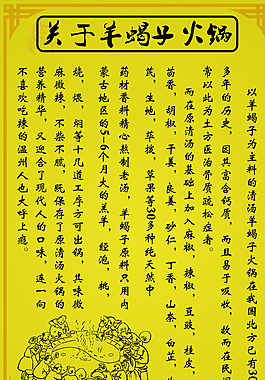 关于羊蝎子火锅
以羊蝎子为主料的清汤羊蝎子火锅在我国北方已有30
多年的历史，因其富含钙质，而且易于吸收，故而在民
常以此为土方医治骨质疏松症者。
而在原清汤的基础上加入麻椒，辣椒，豆豉，桂皮，
茴香，胡椒，干姜，良姜，砂仁，丁香，山萘，白芷，
芪，生地，荜拨，草果等30多种纯天然中
药材香料精心熬制老汤，羊蝎子原料只用内
蒙古地区的5-6个月大的羔羊，经泡，桃，
烧，煨，焖等十几道工序方可出锅，其味微
麻微辣，不柴不腻，既保存了原清汤火锅的
营养精华，又迎合了现代人的口味，连一向
不喜欢吃辣的温州人也大呼上瘾。